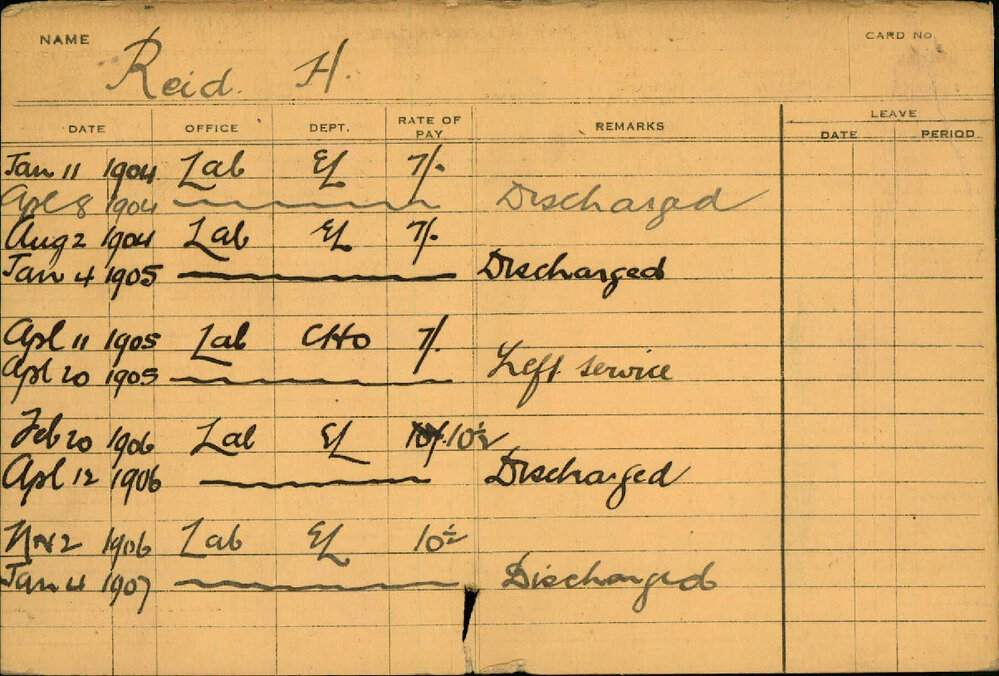 NAME Reid. H. CARD No.
DATE OFFICE DEPT. RATE OF PAY REMARKS LEAVE DATE PERIOD
Jan 11 1904 Lab EL 7/-
Apl 8 1904 Discharged
Aug 2 1904 Lab EL 7/-
Jan 4 1905 Discharged
Apl 11 1905 Lab CHO 7/-
Apl 20 1905 Left service
Feb 20 1906 Lab EL 10½
Apl 12 1906 Discharged
Nov 2 1906 Lab EL 10½
Jan 4 1907 Discharged